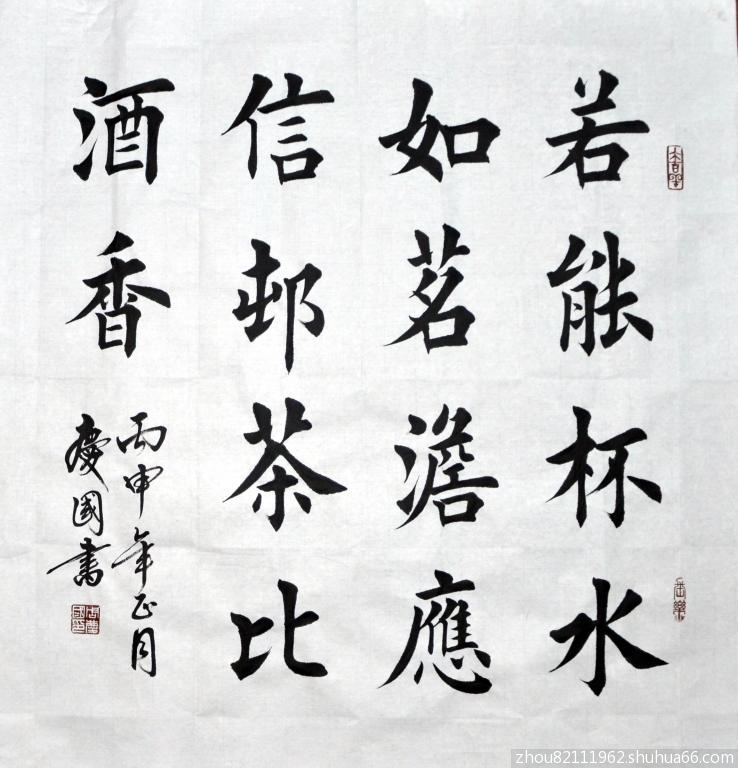 若能杯水
如茗澹應
信邨茶比
酒香
丙申年正月
慶國書
zhou82111962.shuhua66.com